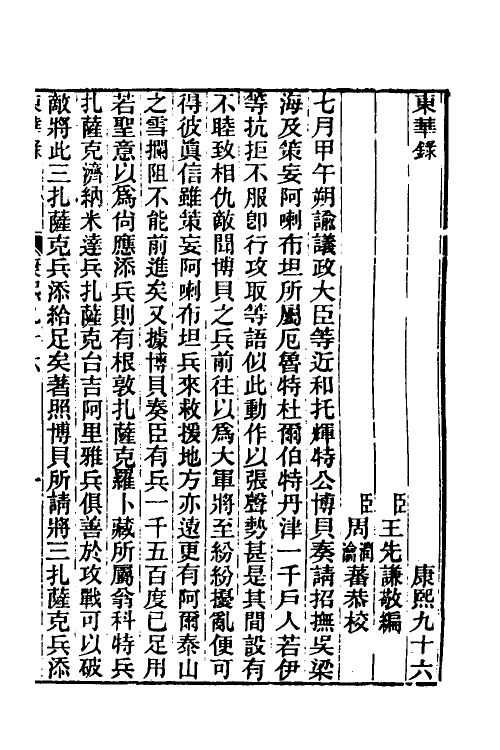 東華錄 康熙九十六
臣王先謙敬編
臣周潤蕃恭校
七月甲午朔諭議政大臣等近和托輝特公博貝奏請招撫吳梁
海及策妄阿喇布坦所屬厄魯特杜爾伯特丹津一千戶人若伊
等抗拒不服卽行攻取等語似此動作以張聲勢甚是其間設有
不睦致相仇敵聞博貝之兵前往以爲大軍將至紛紛擾亂便可
得彼眞信雖策妄阿喇布坦兵來救援地方亦遠更有阿爾泰山
之雪攔阻不能前進矣又據博貝奏臣有兵一千五百度已足用
若聖意以爲尙應添兵則有根敦扎薩克羅卜藏所屬翁科特兵
扎薩克濟納米達兵扎薩克台吉阿里雅兵俱善於攻戰可以破
敵將此三扎薩克兵添給足矣著照博貝所請將三扎薩克兵添